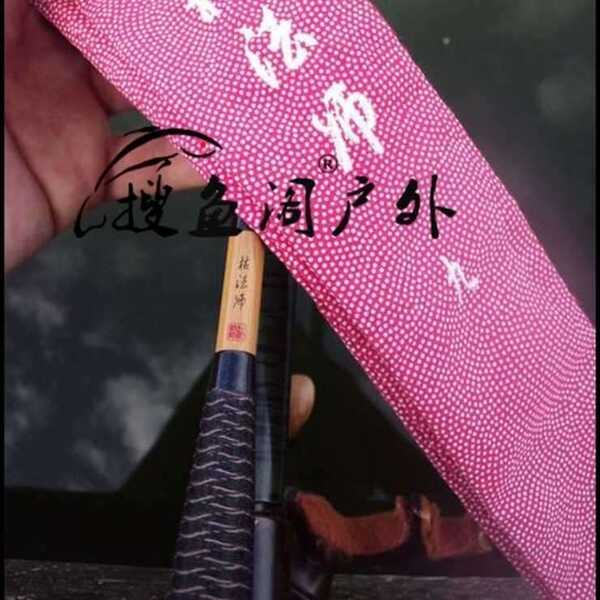 法师
搜鱼阁户外®
枯法师
九